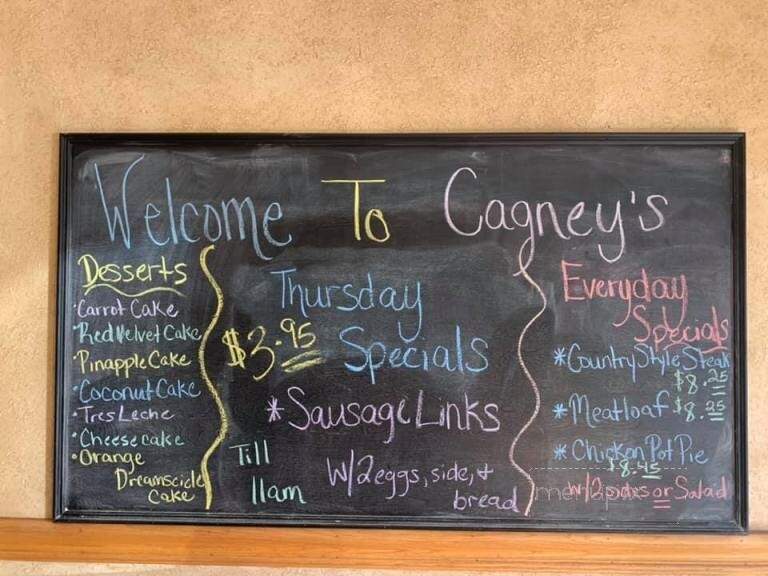 Welcome To Cagney's
Desserts
·Carrot Cake
·Red Velvet Cake
·Pinapple Cake
·Coconut Cake
·Tres Leche
·Cheesecake
·Orange
Dreamscicle
Cake
Thursday
$3.95 Specials
*Sausage Links
Till
11am
W/2 eggs, side, +
bread
Everyday
Specials
*Country Style Steak
$8.25
*Meatloaf $8.25
*Chicken Pot Pie
$8.45
w/2 sides or Salad